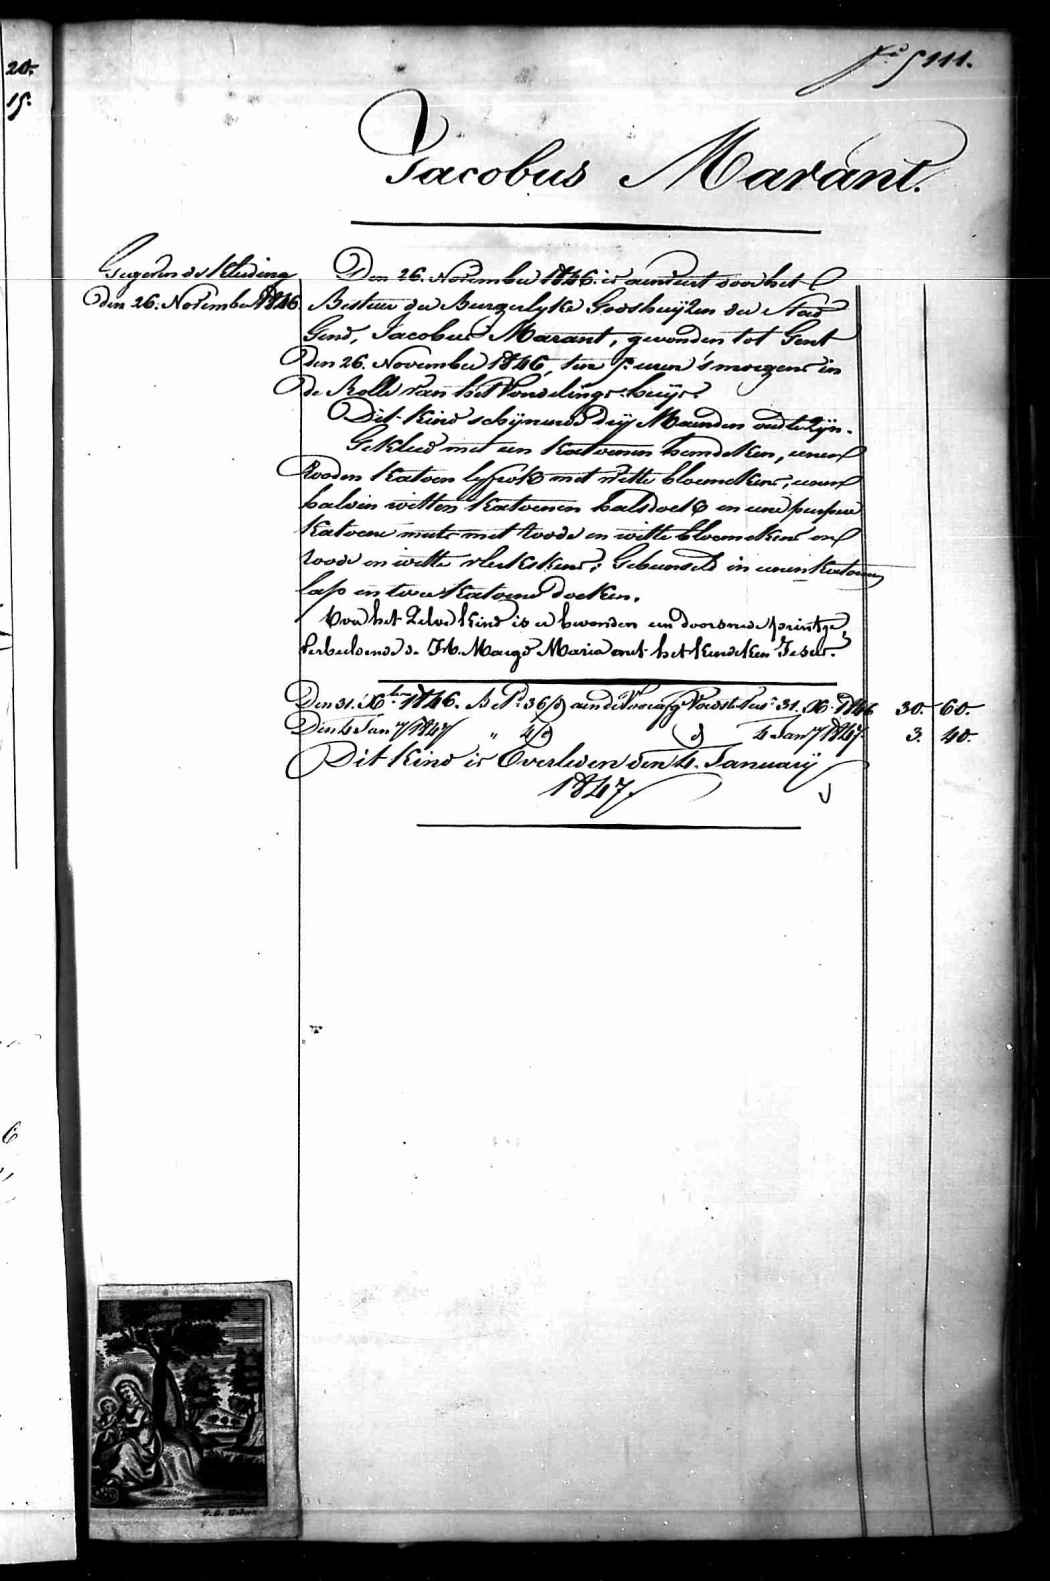 20.
15.
f° 5111.
Jacobus Marant.
Gegeven de kleeding
den 26. November 1846.
Den 26. November 1846 is aenveirt door het
Bestuur der Burgerlyke Godshuyzen der Stad
Gend, Jacobus Marant, gevonden tot Gent
den 26. November 1846, ten uren 's morgens in
de Rolle van het Vondelings-huys.
Dit kind schynende dry Maenden oud te zyn.
Gekleed met een katoenen hemdeken, eenen
rooden katoen lyfrok met witte bloemekens, eenen
halven witten katoenen halsdoek en eene purpere
katoene muts met roode en witte bloemekens en
roode en witte vlekskens; Gebunseld in eenen katoenen
lap en twee katoene doeken.
Voor het zelve kind is er bevonden een doorsnede printje,
verbeeldende de H. Maegd Maria met het kindeken Jesus.
Den 31. Xber 1846. Bet. 36 aen de Voedst. 31. Xb. 1846 30. 60.
Den 4 Jany 1847 " 4 d° 4 Jany 1847. 3. 40.
Dit kind is Overleden den 4. January
1847.